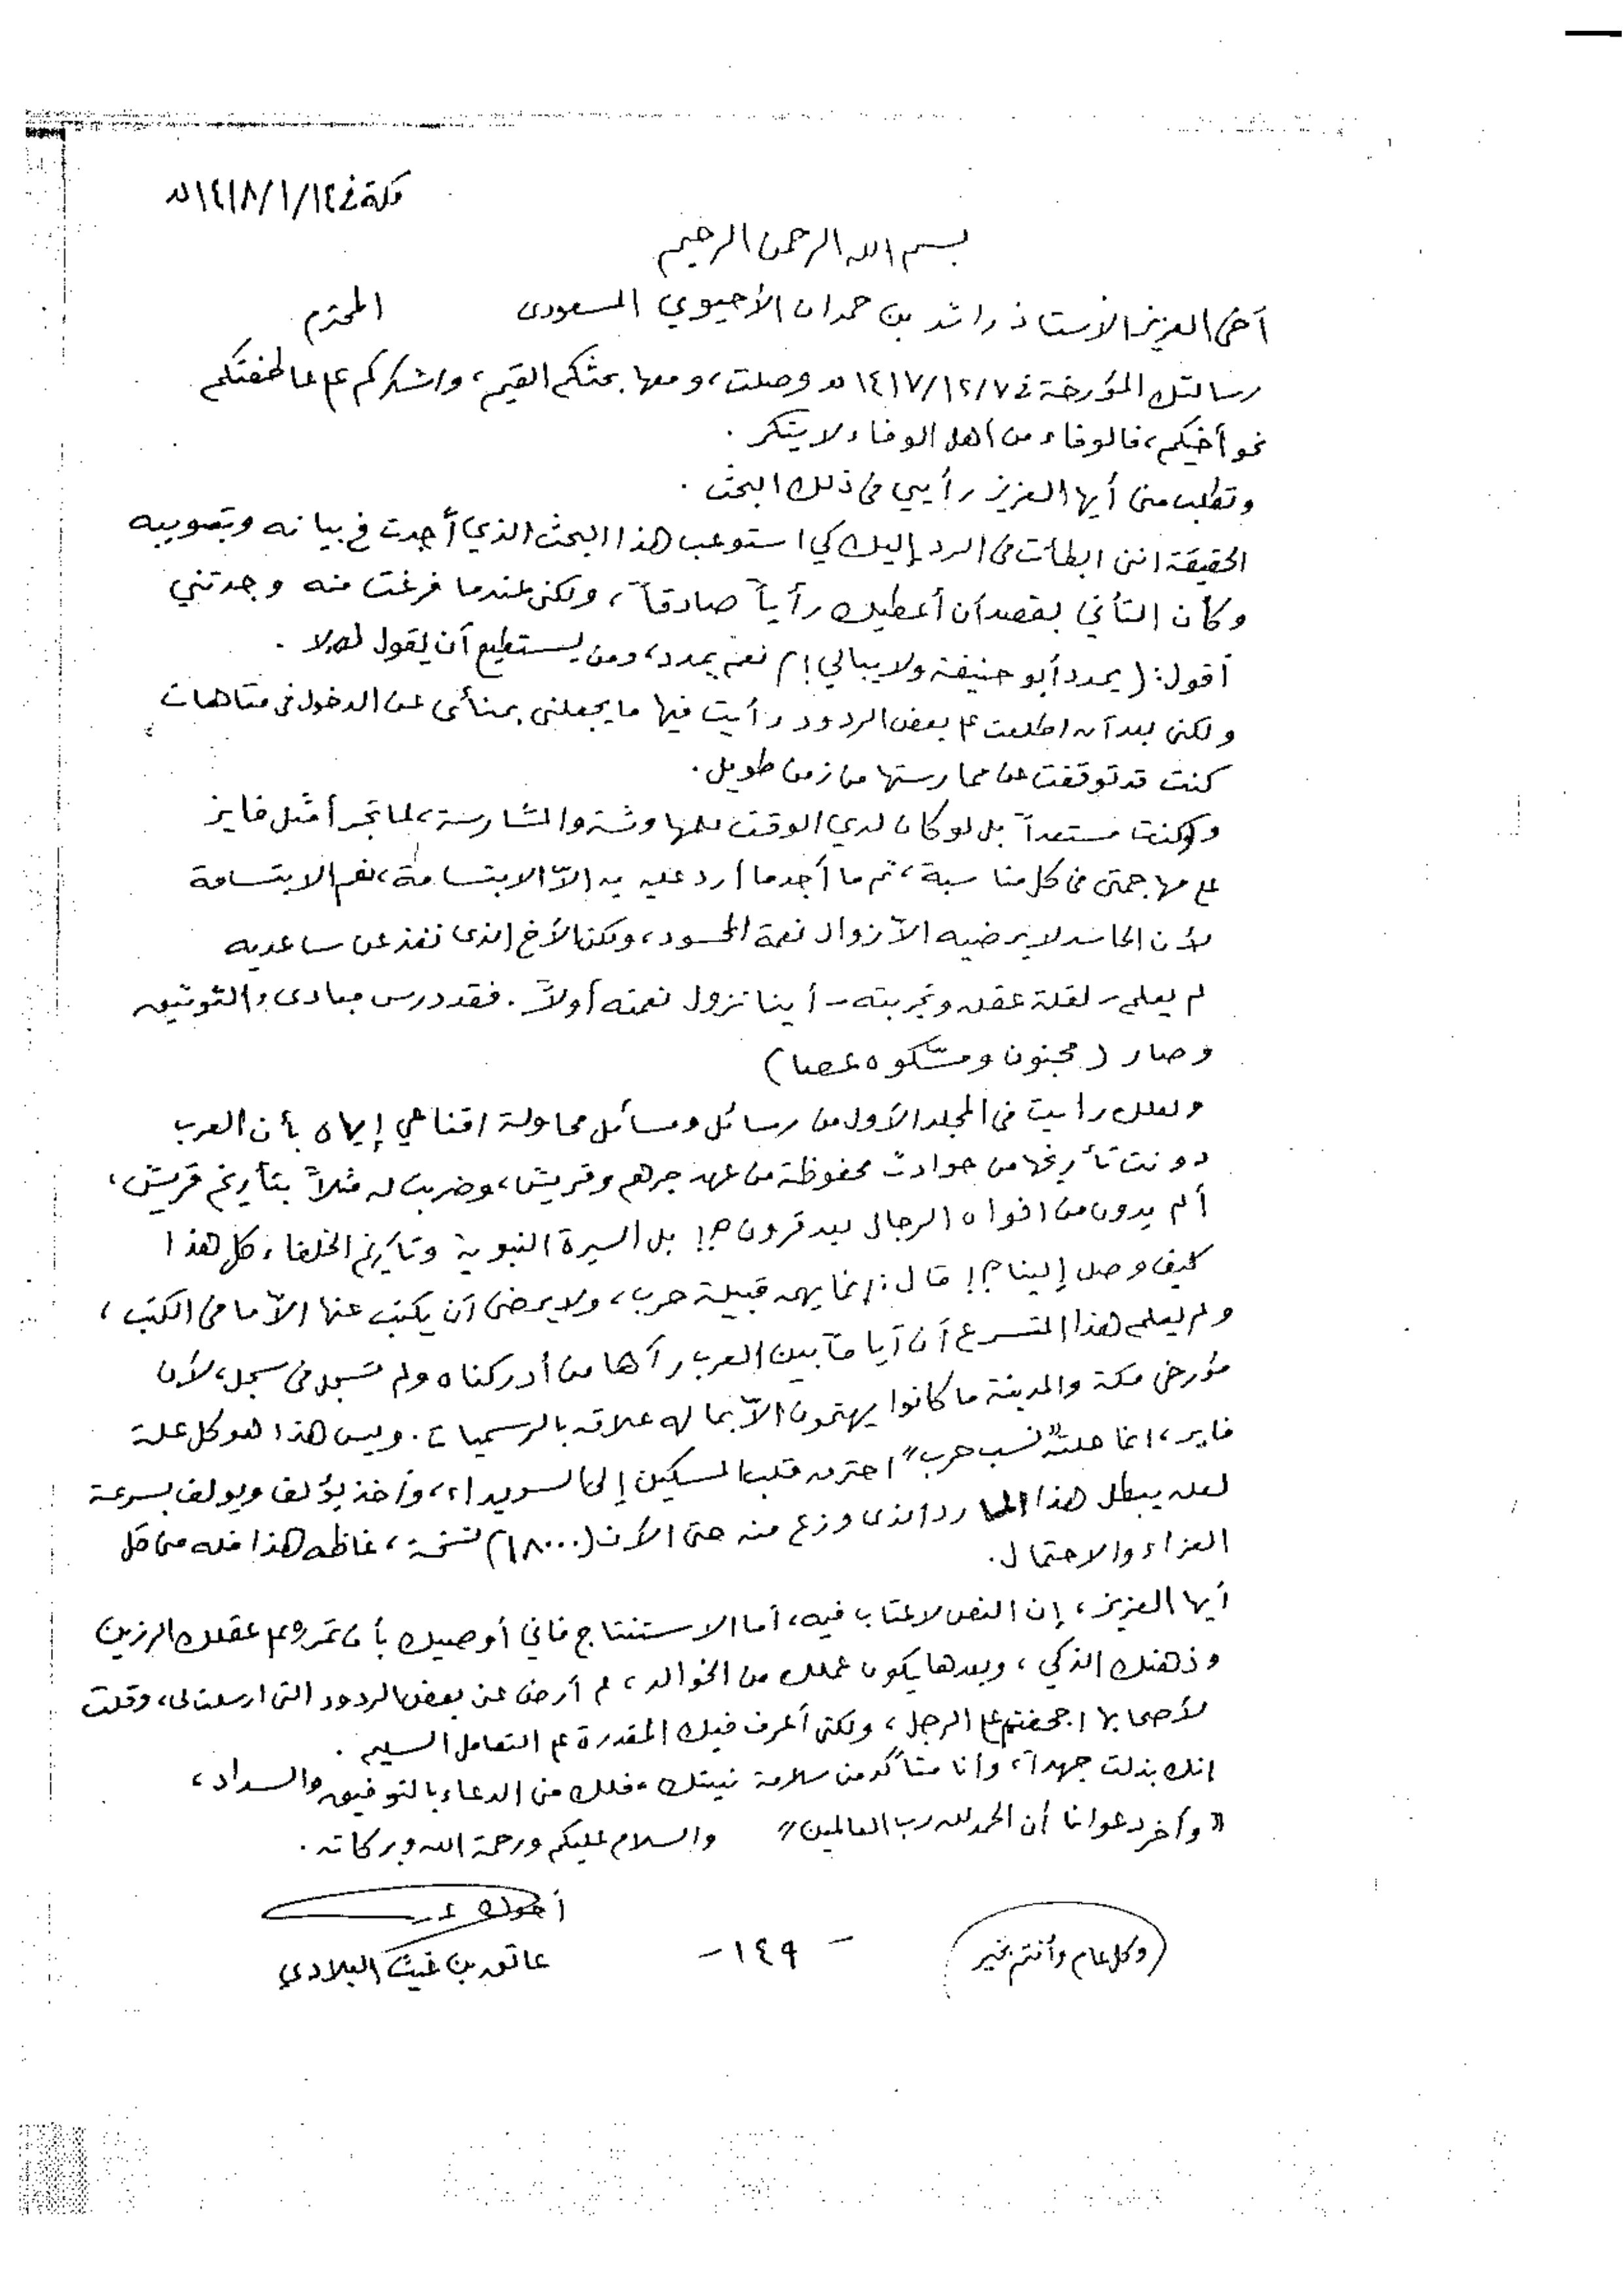 مكة في ١٤١٨/١/١٤هـ
بسم الله الرحمن الرحيم
أخي العزيز الأستاذ راشد بن حمدان الأحيوي المسعودي المحترم
رسالتك المؤرخة في ١٤١٧/١٢/٧هـ وصلت، ومعها بحثكم القيم، واشكركم على عاطفتكم
نحو أخيكم، فالوفاء من أهل الوفاء لا يتكر.
وتطلب مني أيها العزيز رأيي في ذلك البحث.
الحقيقة انني ابطأت في الرد إليك كي استوعب هذا البحث الذي أجدت في بيانه وتصويبه
وكان التأني بقصد أن أعطيك رأياً صادقاً، ولكني عندما فرغت منه وجدتني
أقول: (يمدد أبو حنيفة ولا يبالي؟!) نعم يمدد، ومن يستطيع أن يقول له لا.
ولكني بعد أن اطلعت على بعض الردود رأيت فيها ما يجعلني بمنأى عن الدخول في متاهات
كنت قد توقفت عن ممارستها من زمن طويل.
ولو كنت مستعداً بل لو كان لدي الوقت للمهاوشة والمشارسة، لما تجرأ مثل فايز
على مهاجمتي في كل مناسبة، ثم ما أجد ما أرد عليه به إلاّ الابتسامة، نعم الابتسامة
لأن الحاسد لا يرضيه الاّ زوال نعمة المحسود، ولكن الأخ الذي نفذ عن ساعديه
لم يعلم - لقلة عقله وتجربته - أينا تزول نعمته أولاً. فقد درس مبادىء التوثيق
وصار (مجنون ومسّكوه عصا)
ولعلك رأيت في المجلد الأول من رسائل ومسائل محاولة اقناعي إياه بأن العرب
دونت تأريخها من حوادث محفوظة من عهد جرهم وقريش، وضربت له مثلاً بتأريخ قريش،
ألم يدون من افواه الرجال بعد قرون؟! بل السيرة النبوية وتأريخ الخلفاء كل هذا
كيف وصل إلينا؟! قال: إنما يهمه قبيلة حرب، ولا يرضى أن يكتب عنها الاّ ما في الكتب،
ولم يعلم هذا المتسرع أن أياماً بين العرب رآها من أدركناه ولم تسجل في سجل، لأن
مؤرخي مكة والمدينة ما كانوا يهتمون الاّ بما له علاقة بالرسميات. وليس هذا هو كل علة
فايز، انما علته "نسب حرب" احترق قلب المسكين إلى السويداء، وأخذ يؤلف ويولف بسرعة
لعله يبطل هذا المارد الذي وزع منه حتى الآن (١٨٠٠٠) نسخة، غاظه هذا فله مني كل
العزاء والاحتمال.
أيها العزيز، إن النص لا عتاب فيه، أما الاستنتاج فاني أوصيك بأن تمره على عقلك الرزين
وذهنك الذكي، وبعدها يكون عملك من الخوالد، لم أرض عن بعض الردود التي ارسلت لي، وقلت
لأصحابها اجحفتم على الرجل، ولكني أعرف فيك المقدرة على التعامل السليم.
انك بذلت جهداً، وأنا متأكد من سلامة نيتك، فلك مني الدعاء بالتوفيق والسداد،
"وآخر دعوانا أن الحمد لله رب العالمين" والسلام عليكم ورحمة الله وبركاته.
أخوك
عاتق بن غيث البلادي
- ١٤٩ -
(وكل عام وأنتم بخير)